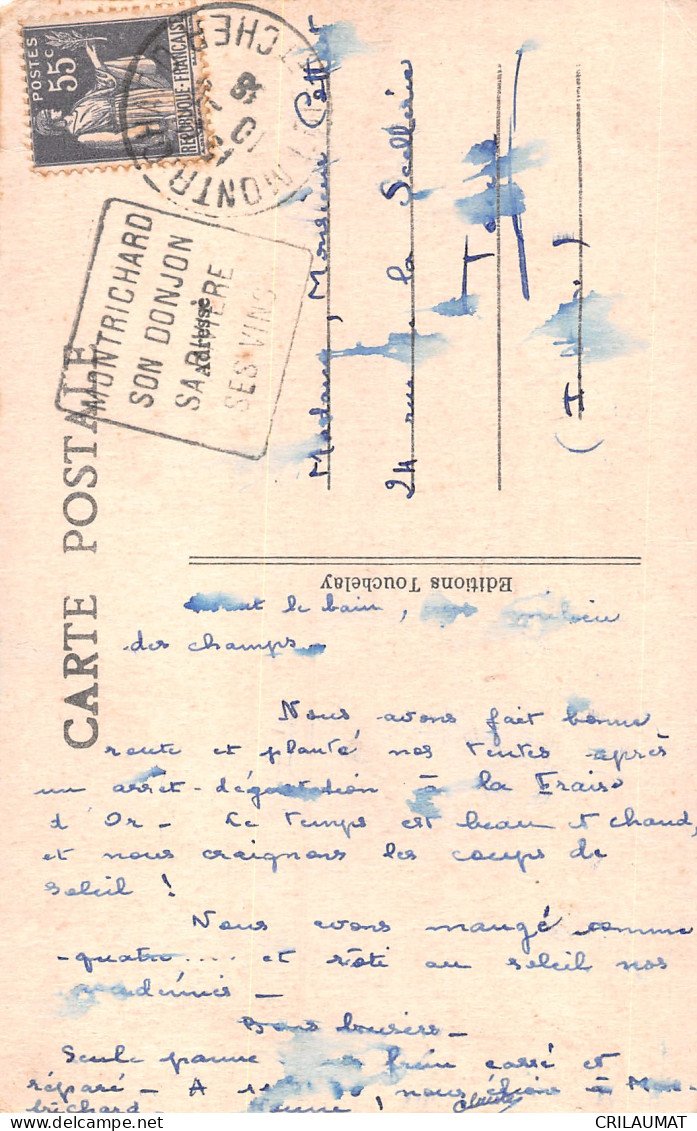 POSTES
55c
REPUBLIQUE FRANÇAISE
MONTRICHARD
SON DONJON
SA RIVIERE
SES VINS
CARTE POSTALE
Adresse
Madame, Monsieur
24 rue la Scellerie
Tours
Editions Touchelay
le bain,
des champs.
Nous avons fait bonne
route et planté nos tentes après
un arrêt-dégustation à la Fraise
d'Or - Le temps est beau et chaud,
et nous craignons les coups de
soleil !
Nous avons mangé comme
quatre .... et rôti au soleil nos
Bons baisers -
Seule panne frein cassé et
réparé - A nous étions à Mon-
trichard -
CRILAUMAT